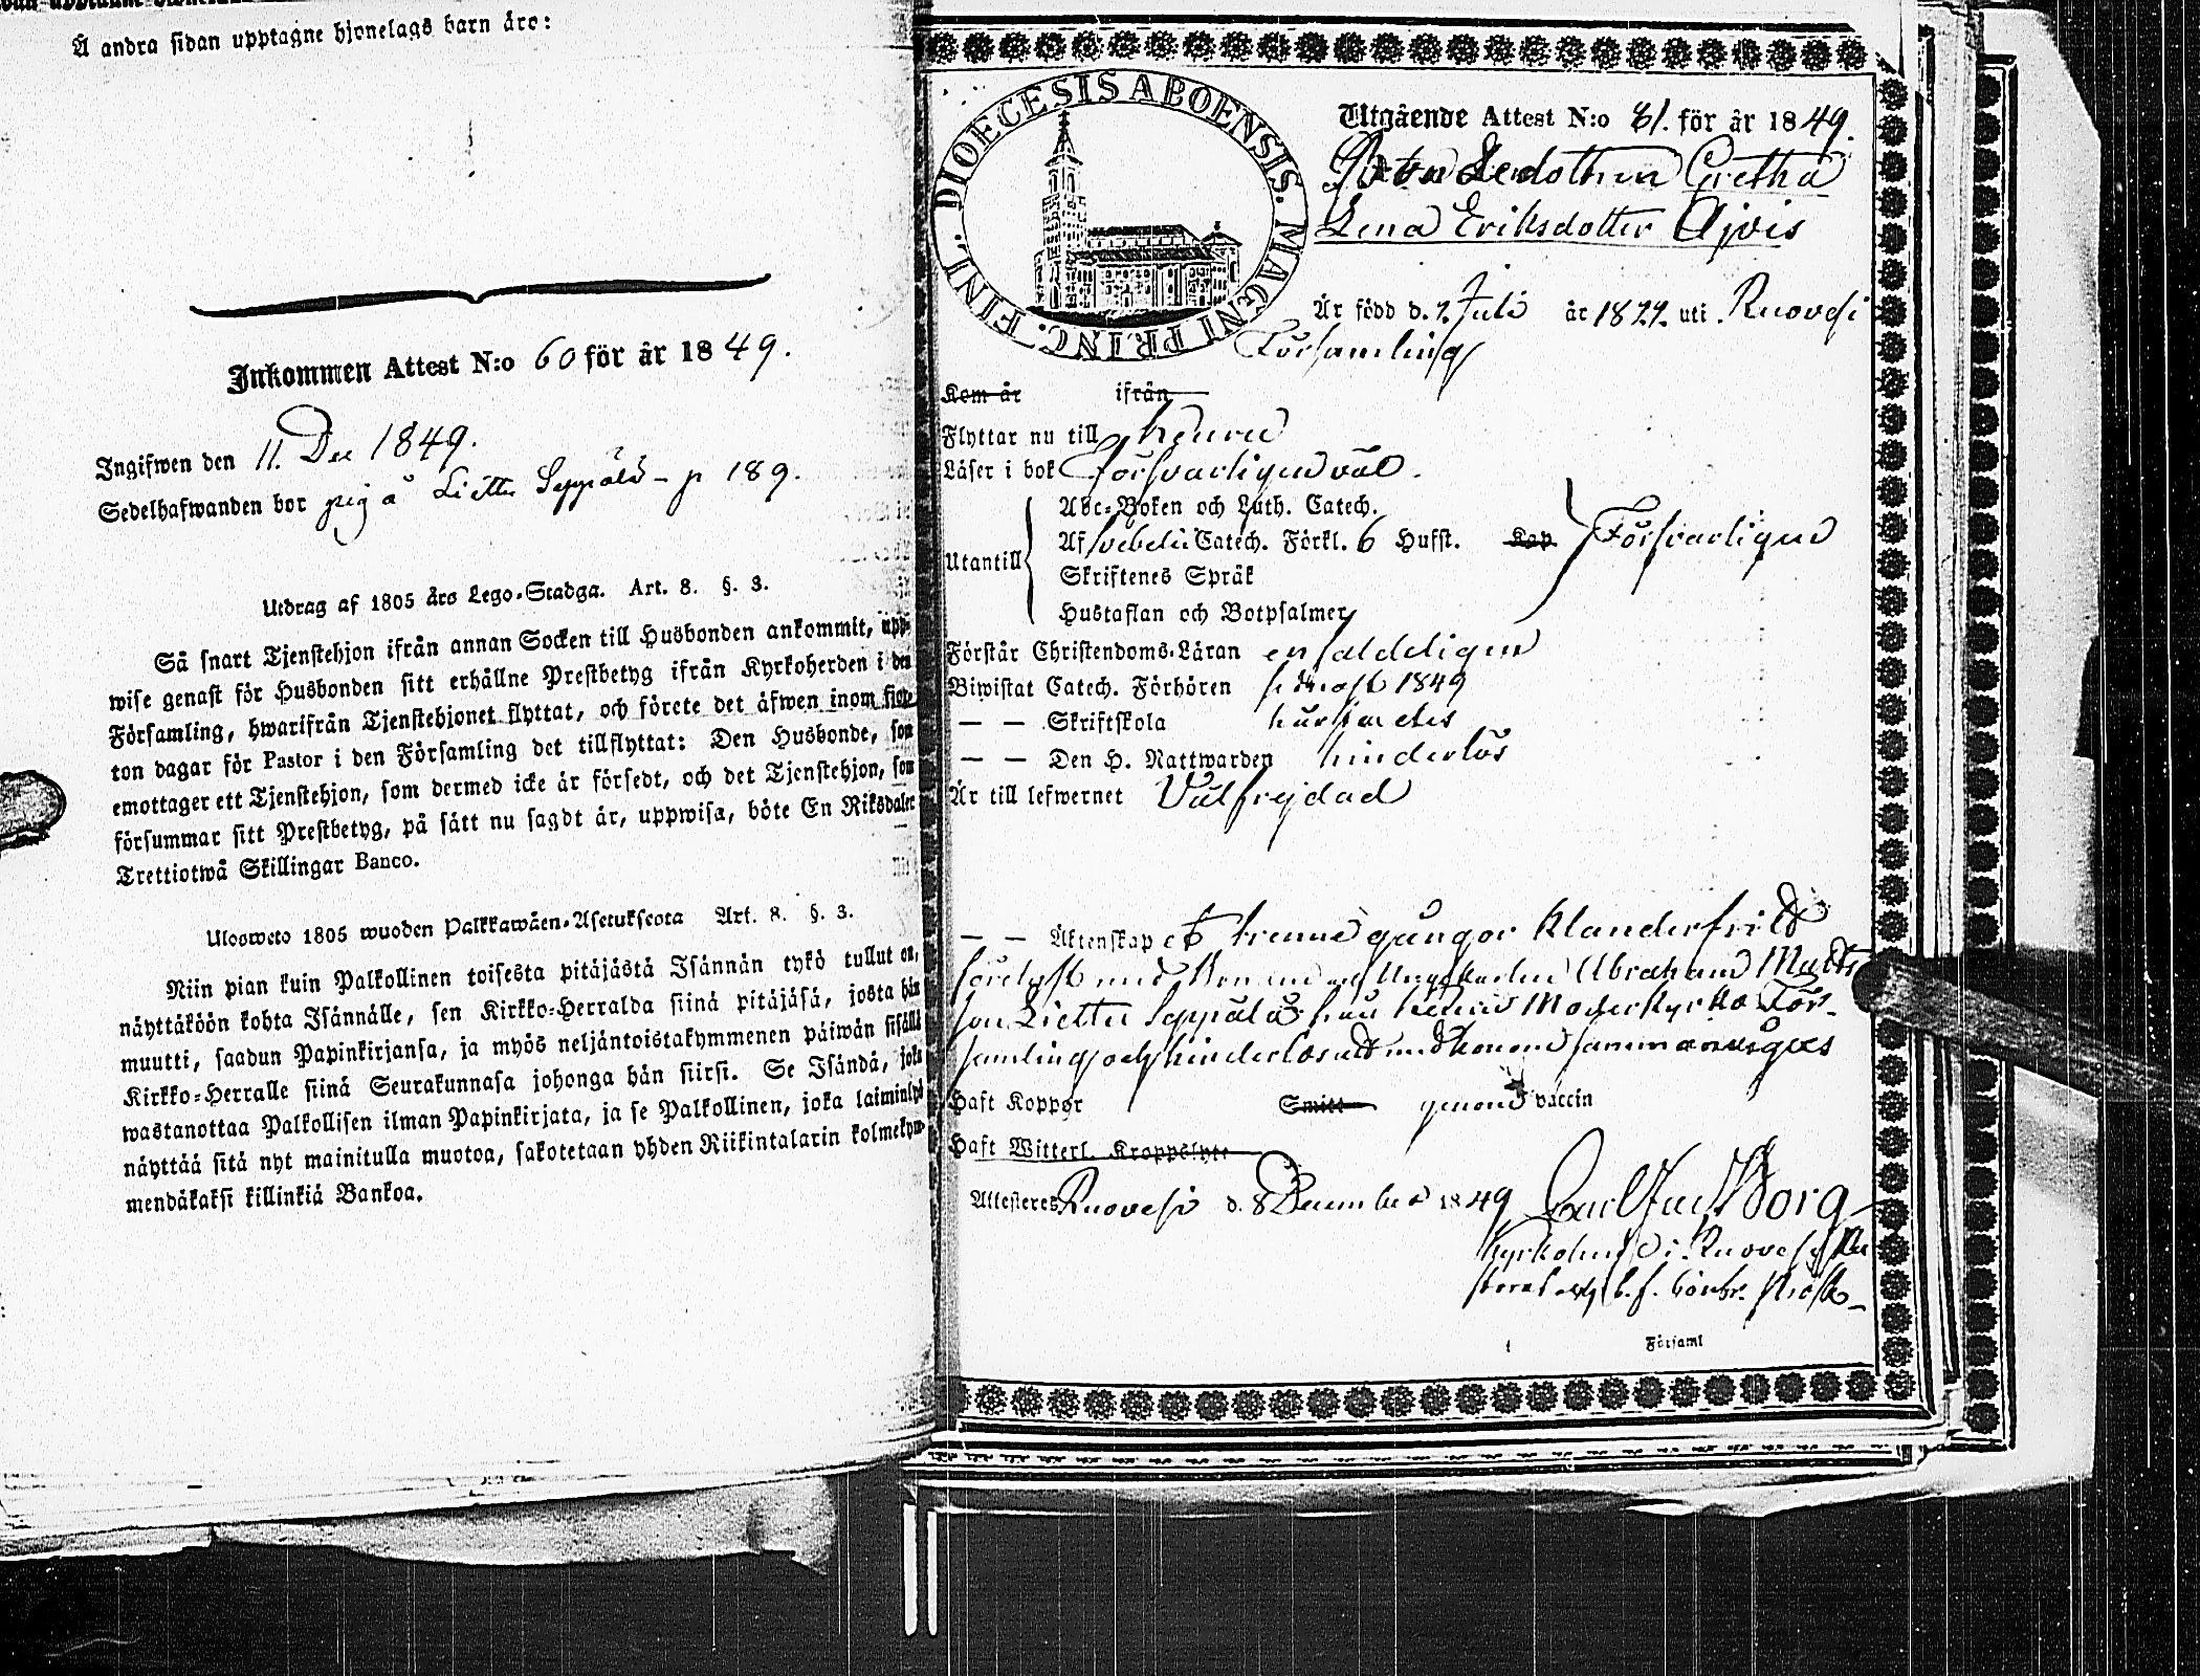 Å andra sidan upptagne hjonelags barn äro:
Inkommen Attest N:o 60 för år 1849.
Ingifwen den 11. Dec 1849.
Sedelhafwanden bor pig å Liette Seppälä - p 189.
Utdrag af 1805 års Lego-Stadga. Art. 8. §. 3.
Så snart Tjenstehjon ifrån annan Socken till Husbonden ankommit, upp-
wise genast för Husbonden sitt erhållne Prestbetyg ifrån Kyrkoherden i den
Församling, hwarifrån Tjenstehjonet flyttat, och förete det äfwen inom fjor-
ton dagar för Pastor i den Församling det tillflyttat: Den Husbonde, som
emottager ett Tjenstehjon, som dermed icke är försedt, och det Tjenstehjon, som
försummar sitt Prestbetyg, på sätt nu sagdt är, uppwisa, böte En Riksdaler
Trettiotwå Skillingar Banco.
Ulosweto 1805 wuoden Palkkawäen-Asetuksesta Art. 8. §. 3.
Niin pian kuin Palkollinen toisesta pitäjästä Isännän tykö tullut on,
näyttäköön kohta Isännälle, sen Kirkko-Herralda siinä pitäjäsä, josta hän
muutti, saadun Papinkirjansa, ja myös neljäntoistakymmenen päiwän sisällä
Kirkko-Herralle siinä Seurakunnasa johonga hän siirsi. Se Isändä, joka
wastanottaa Palkollisen ilman Papinkirjata, ja se Palkollinen, joka laiminlyö
näyttää sitä nyt mainitulla muotoa, sakotetaan yhden Riikintalarin kolmekym-
mendäkaksi killinkiä Bankoa.
DIOECESIS ABOENSIS. MAGNI PRINC. FINL.
Utgående Attest N:o 81. för år 1849.
Gretha
Lena Eriksdotter Ajvis
Är född d. 7. Juli år 1827. uti Ruovesi
Församling
Kom år ifrån
Flyttar nu till Keuru
Läser i bok försvarligen väl.
Utantill
Abc-Boken och Luth. Catech.
Af Svebelii Catech. Förkl. 6 Hufst. Kap
Skriftenes Språk
Hustaflan och Botpsalmer
Försvarligen
Förstår Christendoms-Läran enfaldeligen
Biwistat Catech. Förhören sednast 1849
— — Skriftskola
— — Den H. Nattwarden hinderlös
Är till lefwernet Välfrejdad
— — Äktenskap et trenne gångor klanderfritt
Abraham Matts
son Liette Seppälä Moderkyrko För-
samling och
Haft Koppor Smitt genom vaccin
Haft Witterl. Kroppslyte
Attesteras Ruovesi d. 8 December 1849 Carl Borg
Kyrkoherde i Ruovesi Pa
Församl